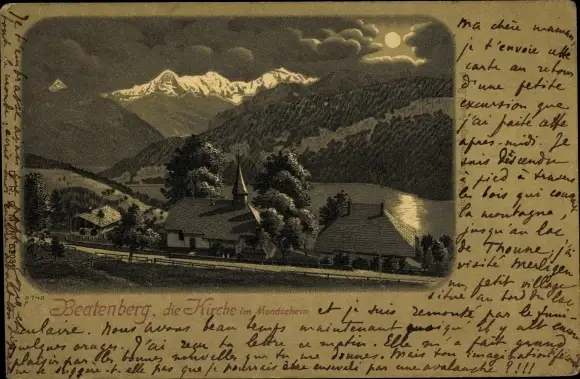 Ma chère maman
je t'envoie cette
carte au retour
d'une petite
excursion que
j'ai faite cette
après-midi. Je
suis descendu
à pied à travers
le bois qui couvre
la montagne
jusqu'au lac
de Thoune, j'ai
visité Merligen
un petit village
situé au bord du lac
et je suis remonté par le funi-
culaire. Nous avons beau temps maintenant quoiqu'il y ait encore
quelques orages. J'ai reçu ta lettre ce matin. Elle m'a fait grand
plaisir par les bonnes nouvelles que tu me donnes. Mais ton imagination
ne te suggère-t-elle pas que je pourrais être enseveli par une avalanche ?!!!
Je t'embrasse ainsi que
tout le monde
Beatenberg, die Kirche im Mondschein